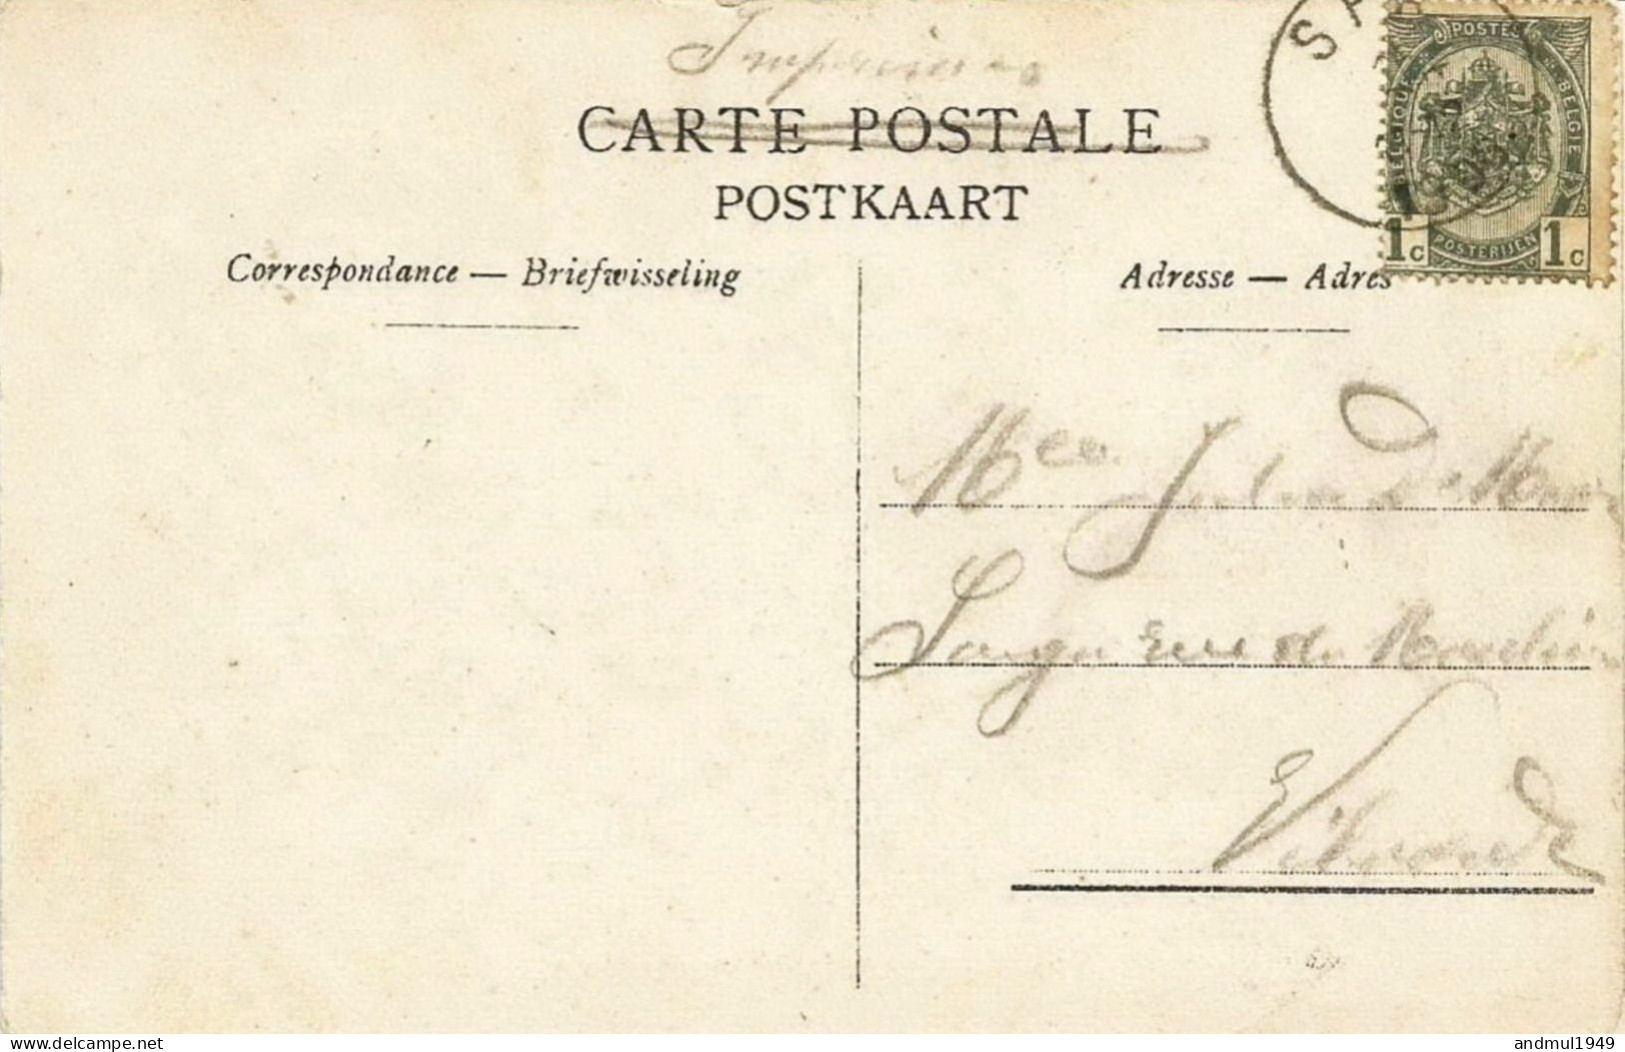 Imprimé
CARTE POSTALE
POSTKAART
Correspondance — Briefwisseling
Adresse — Adres
POSTES
BELGIQUE
BELGIE
POSTERIJEN
1c 1c
Longue rue du Moulin
Vilvorde
www.delcampe.net
andmul1949